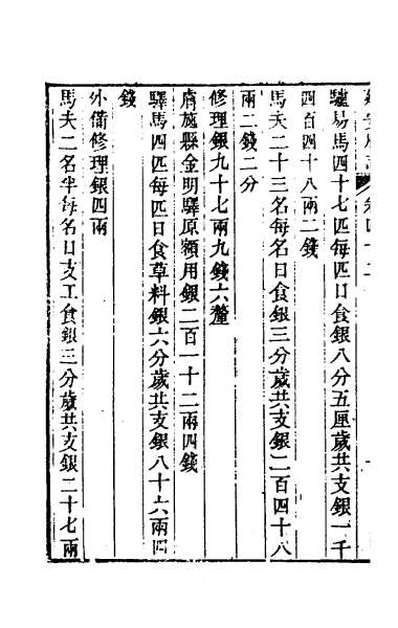 延安府志 卷四十二
驢易馬四十七匹每匹日食銀八分五厘歲共支銀一千
四百四十八兩二錢
馬夫二十三名每名日食銀三分歲共支銀二百四十八
兩二錢二分
修理銀九十七兩九錢六釐
膚施縣金明驛原額用銀二百一十二兩四錢
驛馬四匹每匹日食草料銀六分歲共支銀八十六兩四
錢
外備修理銀四兩
馬夫二名半每名日支工食銀三分歲共支銀二十七兩